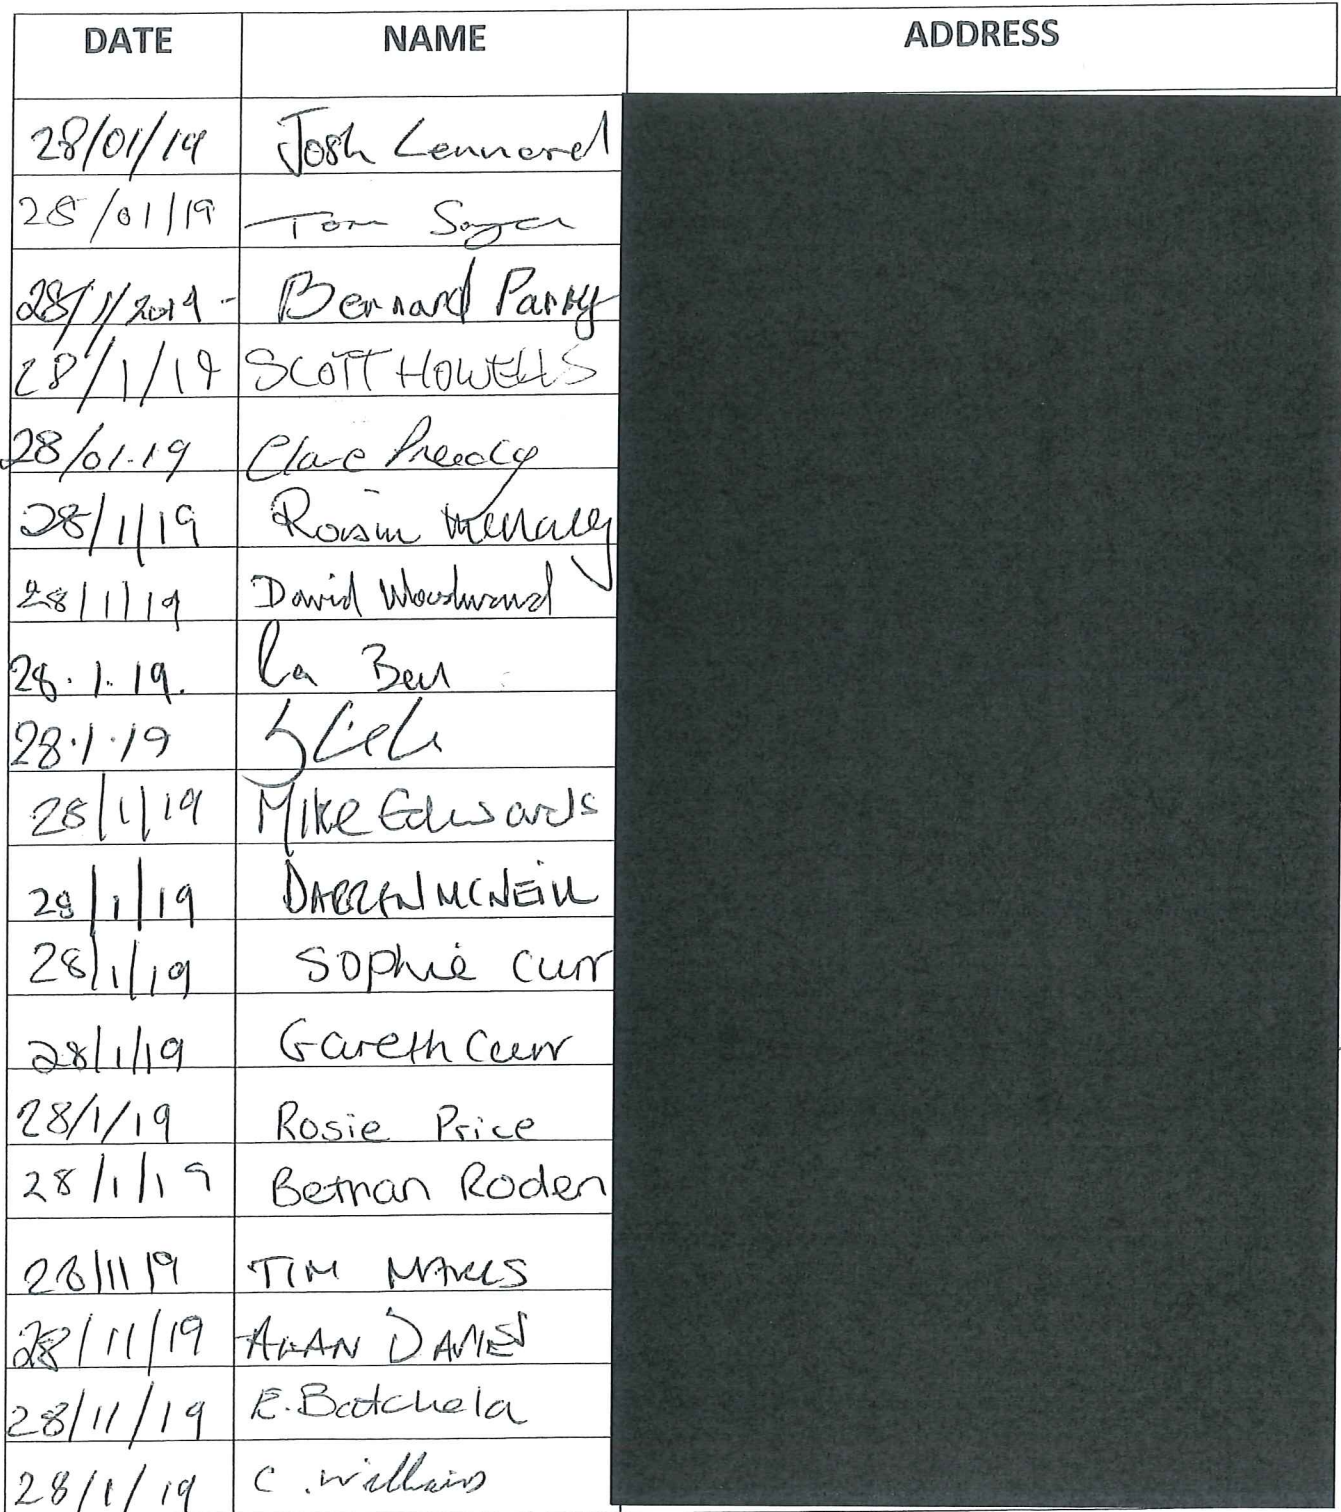 DATE NAME ADDRESS
28/01/19 Josh Lennard
28/01/19 Tom
28/1/2019 - Bernard Parry
28/1/19 SCOTT HOWELLS
28/01.19 Clare Preedy
28/1/19 Roisin
28/1/19 David Woodward
28.1.19. Bell
28.1.19
28/1/19 Mike Edwards
28/1/19 DARREN MCNEILL
28/1/19 Sophie Curr
28/1/19 Gareth Curr
28/1/19 Rosie Price
28/1/19 Bethan Roden
28/1/19 TIM
28/11/19 ALAN DAVIES
28/11/19 E. Batchelor
28/1/19 C. Williams